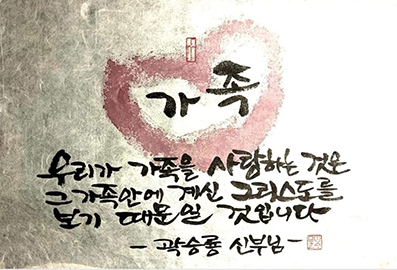 가족
우리가 가족을 사랑하는 것은
그 가족안에 계신 그리스도를
보기 때문일 것입니다
- 곽승룡 신부님 -